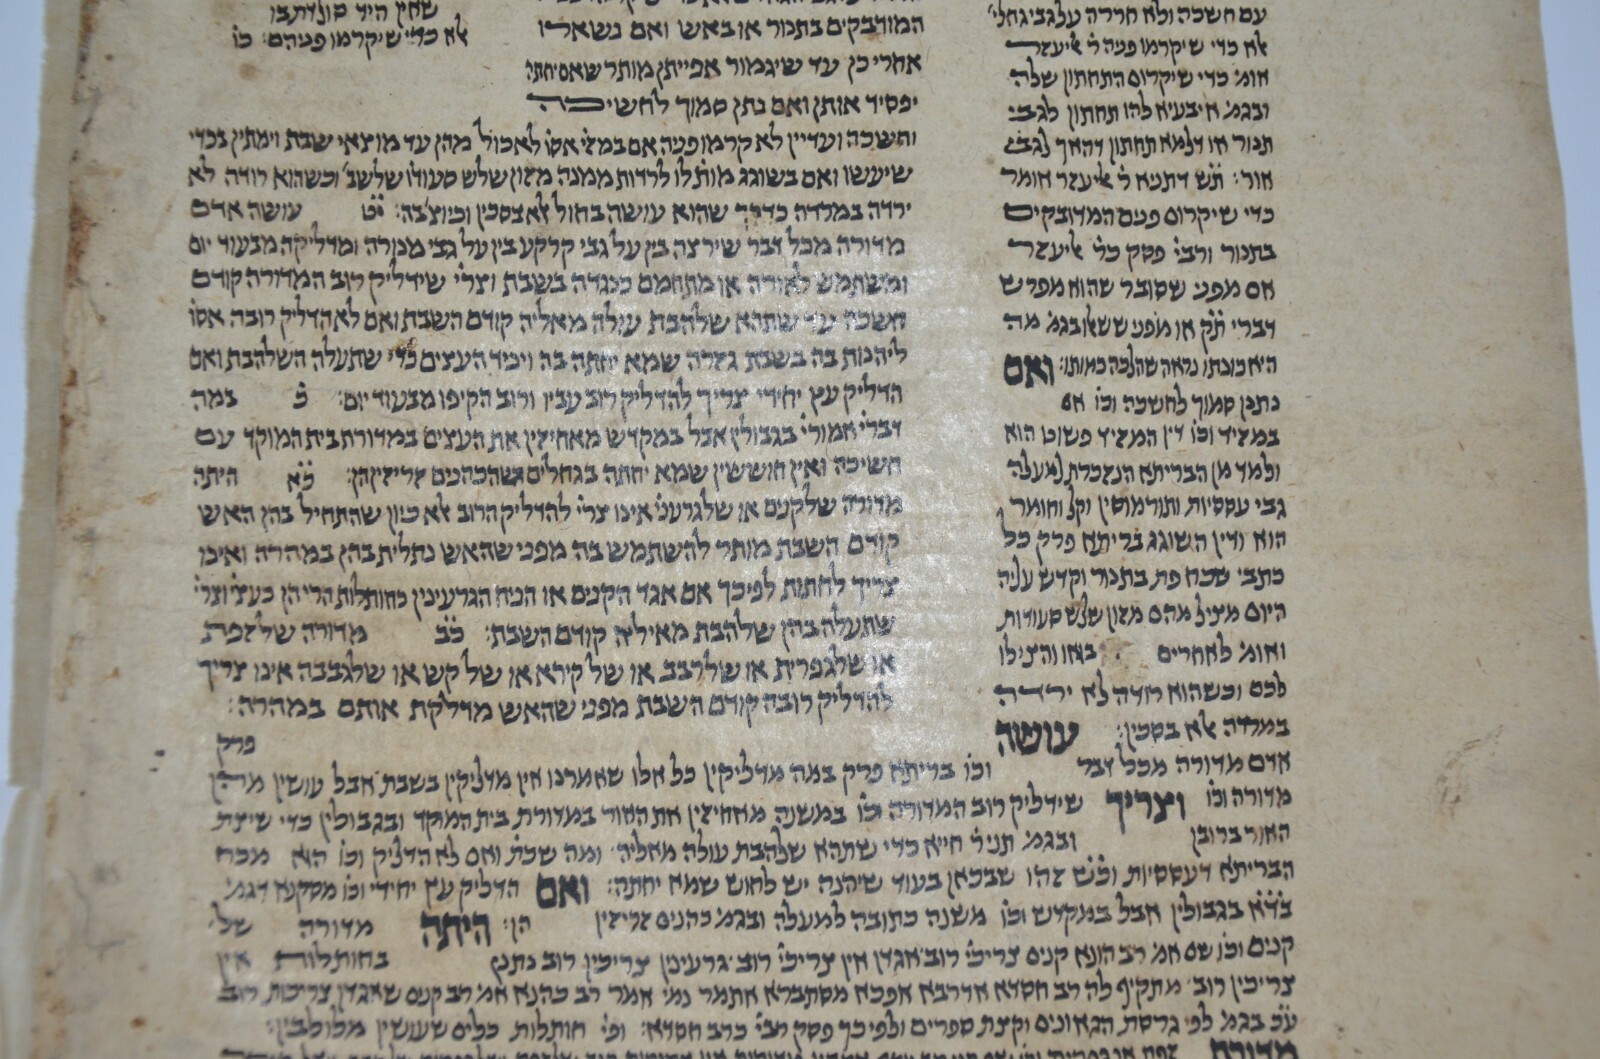 המודבקים בתנור או באש ואם נשארו
אחרי כן עד שיגמור אפייתן מותר שאם יחתה
יפסיד אותן ואם נתן סמוך לחשיכה
וחשכה ועדיין לא קרמו פניה אם במזי׳ אסו׳ לאכול מהן עד מוצאי שבת וימתין בכדי
שיעשו ואם בשוגג מותר לו לרדות ממנה מזון שלש סעודו׳ של שב׳ וכשהוא רודה לא
ירדה במרדה כדרך שהוא עושה בחול אלא בסכין וכיוצ׳ בה: יט עושה אדם
מדורה מכל דבר שירצה בין על גבי קרקע בין על גבי מנורה ומדליקה מבעוד יום
ומשתמש לאורה או מתחמם כנגדה בשבת וצרי׳ שידליק רוב המדורה קודם
חשכה עד שתהא שלהבת עולה מאליה קודם השבת ואם לא הדליק רובה אסו׳
ליהנות בה בשבת גזרה שמא יחתה בה ויניד העצים כדי שתעלה השלהבת ואם
הדליק עץ יחידי צריך להדליק רוב עביו ורוב הקיפו מבעוד יום: כ במה
דברי׳ אמורי׳ בגבולין אבל במקדש מאחיזין את העצים במדורת בית המוקד עם
חשיכה ואין חוששין שמא יחתה בגחלים שהכהנים זריזין הן: כא היתה
מדורה של קנים או של גרעיני׳ אינו צרי׳ להדליק הרוב אלא כיון שהתחיל בהן האש
קודם השבת מותר להשתמש בה מפני שהאש נתלית בהן במהרה ואינו
צריך לחתות לפיכך אם אגד הקנים או הניח הגרעינין בחותלות הרי הן כעצי׳ וצרי׳
שתעלה בהן שלהבת מאיליה קודם השבת: כב מדורה של זפת
או של גפרית או של רבב או של קירא או של קש או של גבבה אינו צריך
להדליק רובה קודם השבת מפני שהאש מדלקת אותם במהרה:
פרק
עם חשכה ולא חררה על גבי גחלי׳
אלא כדי שיקרמו פניה ר׳ אליעזר
אומ׳ כדי שיקרום התחתון שלה
ובגמ׳ איבעיא להו תחתון לגבי
תנור או דלמא תחתון דהאך לגבי
אור: תש דתניא ר׳ אליעזר אומר
כדי שיקרום פנים המדובקים
בתנור ורבי׳ פסק כר׳ אליעזר
אם מפני שסובר שהוא מפרש
היא כוונתו נראה שהלכה כמותו: ואם
נתנן סמוך לחשכה וכו׳ אם
במזיד וכו׳ דין המזיד פשוט הוא
ולמד מן הברייתא הנזכרת למעלה
גבי עססיות ותורמוסין וקל וחומר
הוא ודין השוגג ברייתא פרק כל
כתבי שכח פת בתנור וקדש עליה
היום מציל מהם מזון שלש סעודות
ואומ׳ לאחרים בואו והצילו
לכם וכשהוא רודה לא ירדה
במרדה אלא בסכין: עושה
אדם מדורה מכל דבר וכו׳ בריתא פרק במה מדליקין כל אלו שאמרנו אין מדליקין בשבת אבל עושין מהן
מדורה וכו׳ וצריך שידליק רוב המדורה וכו׳ במשנה מאחיזין את האור במדורת בית המוקד ובגבולין כדי שיצת
האור ברובן ובגמ׳ תני ר׳ חייא כדי שתהא שלהבת עולה מאליה ומה שכת׳ ואם לא הדליק וכו׳ הוא מכח
הבריתא דעססיות וכש׳ זהו שבכאן בעוד שיהנה יש לחוש שמא יחתה: ואם הדליק עץ יחידי וכו׳ מסקנא דגמ׳
בד׳א בגבולין אבל במקדש וכו׳ משנה כתובה למעלה ובגמ׳ כהנים זריזין הן: היתה מדורה של
קנים וכו׳ שם אמ׳ רב הונא קנים צריכי׳ רוב אגדן אין צריכי׳ רוב גרעינין צריכין רוב נתנן בחותלות אין
צריכין רוב מתקיף לה רב חסדא אדרבא אפכא מסתברא אתמר נמי אמר רב כהנא אמ׳ רב קנים שאגדן צריכות רוב
ע״כ בגמ׳ לפי גרסת הגאונים וקצת ספרים ולפי כך פסק רבי׳ כרב חסדא: ופי׳ חותלות כלים שעושין מלולבין: